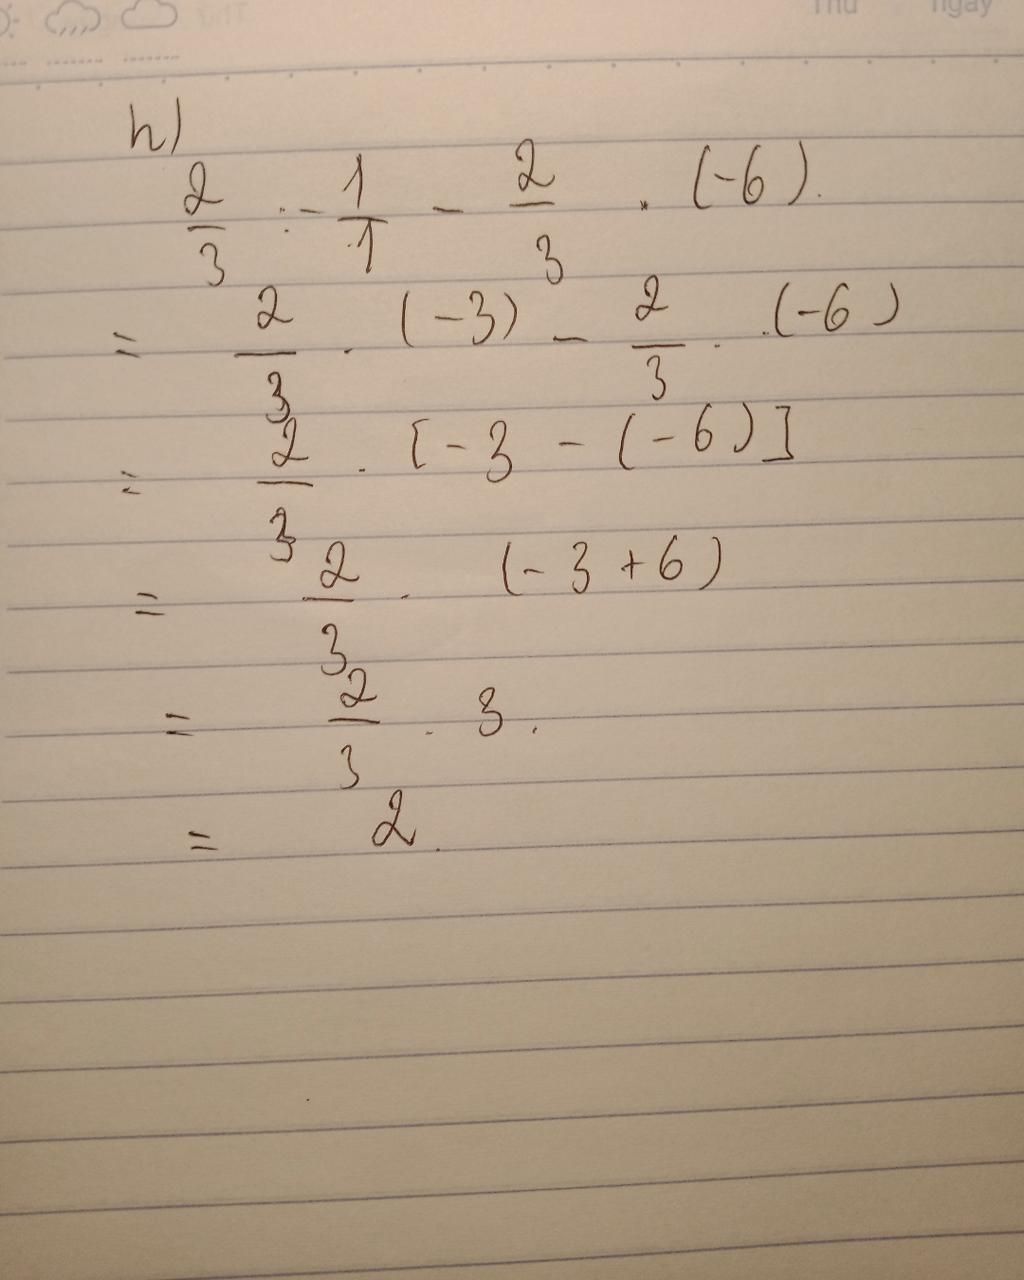 Thứ ngày
h)
2/3 : -1/1 - 2/3 . (-6).
= 2/3 . (-3) - 2/3 . (-6)
= 2/3 . [-3 - (-6)]
= 2/3 . (-3 + 6)
= 2/3 . 3.
= 2.